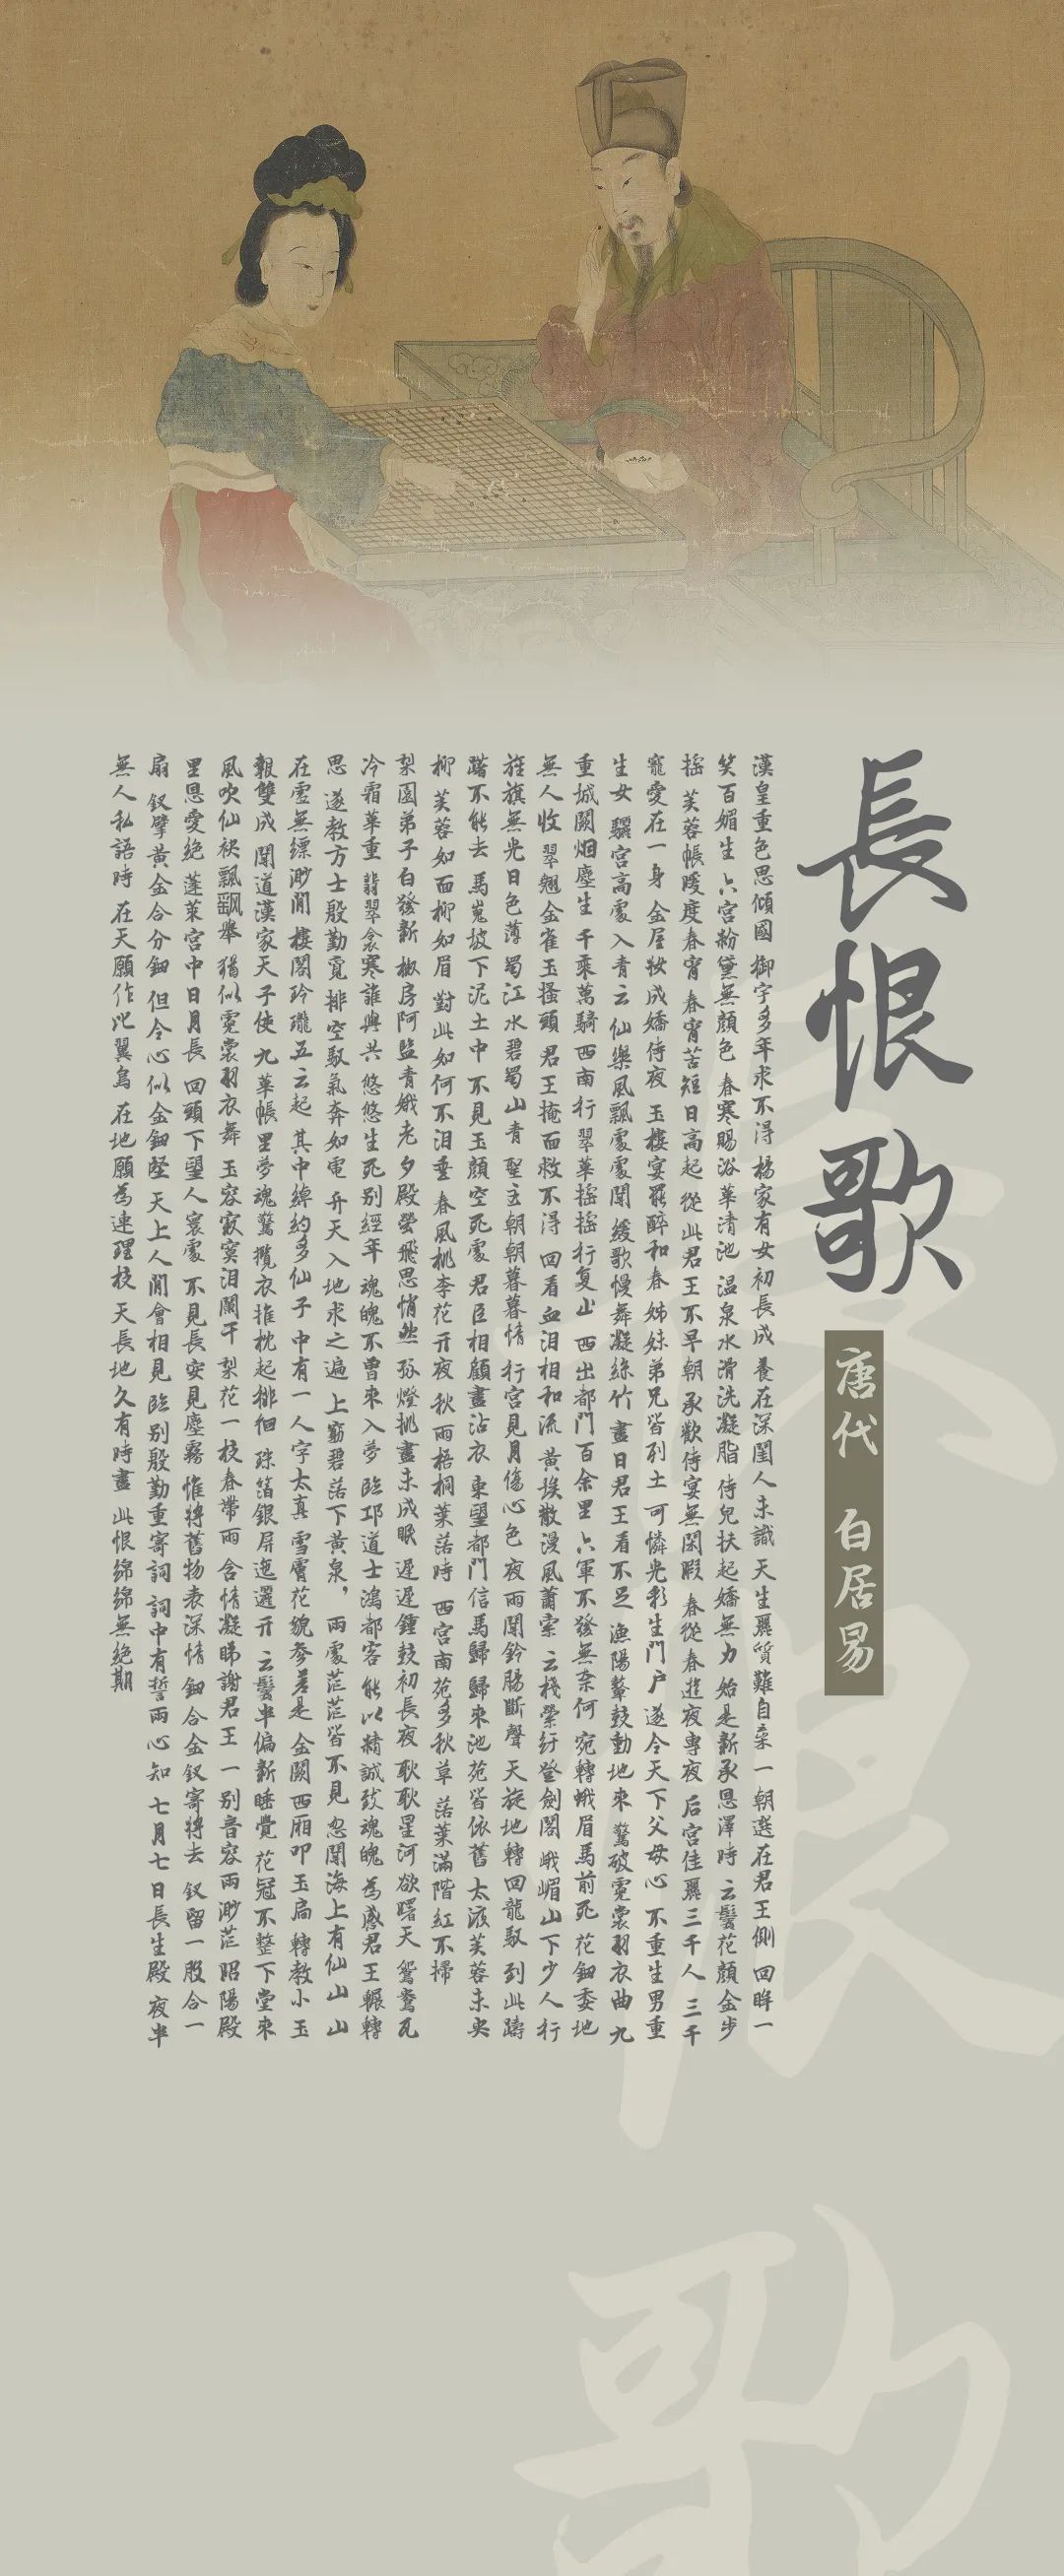 長恨歌
唐代 白居易
漢皇重色思傾國 御宇多年求不得 楊家有女初長成 養在深閨人未識 天生麗質難自棄 一朝選在君王側 回眸一
笑百媚生 六宮粉黛無顏色 春寒賜浴華清池 温泉水滑洗凝脂 侍兒扶起嬌無力 始是新承恩澤時 云鬢花顏金步
搖 芙蓉帳暖度春宵 春宵苦短日高起 從此君王不早朝 承歡侍宴無閑暇 春從春遊夜專夜 后宮佳麗三千人 三千
寵愛在一身 金屋妝成嬌侍夜 玉樓宴罷醉和春 姊妹弟兄皆列土 可憐光彩生門户 遂令天下父母心 不重生男重
生女 驪宮高處入青云 仙樂風飄處處聞 緩歌慢舞凝絲竹 盡日君王看不足 漁陽鼙鼓動地來 驚破霓裳羽衣曲 九
重城闕烟塵生 千乘萬騎西南行 翠華搖搖行复止 西出都門百余里 六軍不發無奈何 宛轉蛾眉馬前死 花鈿委地
無人收 翠翹金雀玉搔頭 君王掩面救不得 回看血泪相和流 黃埃散漫風蕭索 云棧縈紆登劍閣 峨嵋山下少人行
旌旗無光日色薄 蜀江水碧蜀山青 聖主朝朝暮暮情 行宮見月傷心色 夜雨聞鈴腸斷聲 天旋地轉回龍馭 到此躊
躇不能去 馬嵬坡下泥土中 不見玉顏空死處 君臣相顧盡沾衣 東望都門信馬歸 歸來池苑皆依舊 太液芙蓉未央
柳 芙蓉如面柳如眉 對此如何不泪垂 春風桃李花开夜 秋雨梧桐葉落時 西宮南苑多秋草 落葉滿階紅不掃
梨園弟子白發新 椒房阿監青娥老 夕殿螢飛思悄然 孤燈挑盡未成眠 遲遲鍾鼓初長夜 耿耿星河欲曙天 鴛鴦瓦
冷霜華重 翡翠衾寒誰與共 悠悠生死别經年 魂魄不曾來入夢 臨邛道士鴻都客 能以精誠致魂魄 為感君王輾轉
思 遂教方士殷勤覓 排空馭氣奔如電 升天入地求之遍 上窮碧落下黃泉，兩處茫茫皆不見 忽聞海上有仙山 山
在虛無縹渺間 樓閣玲瓏五云起 其中綽約多仙子 中有一人字太真 雪膚花貌參差是 金闕西厢叩玉扃 轉教小玉
報雙成 聞道漢家天子使 九華帳里夢魂驚 攬衣推枕起徘徊 珠箔銀屏迤邐开 云鬢半偏新睡覺 花冠不整下堂來
風吹仙袂飄飖舉 猶似霓裳羽衣舞 玉容寂寞泪闌干 梨花一枝春帶雨 含情凝睇謝君王 一别音容兩渺茫 昭陽殿
里恩愛絕 蓬萊宮中日月長 回頭下望人寰處 不見長安見塵霧 惟將舊物表深情 鈿合金釵寄將去 釵留一股合一
扇 釵擘黃金合分鈿 但令心似金鈿堅 天上人間會相見 臨别殷勤重寄詞 詞中有誓兩心知 七月七日長生殿 夜半
無人私語時 在天願作比翼鳥 在地願為連理枝 天長地久有時盡 此恨綿綿無絕期